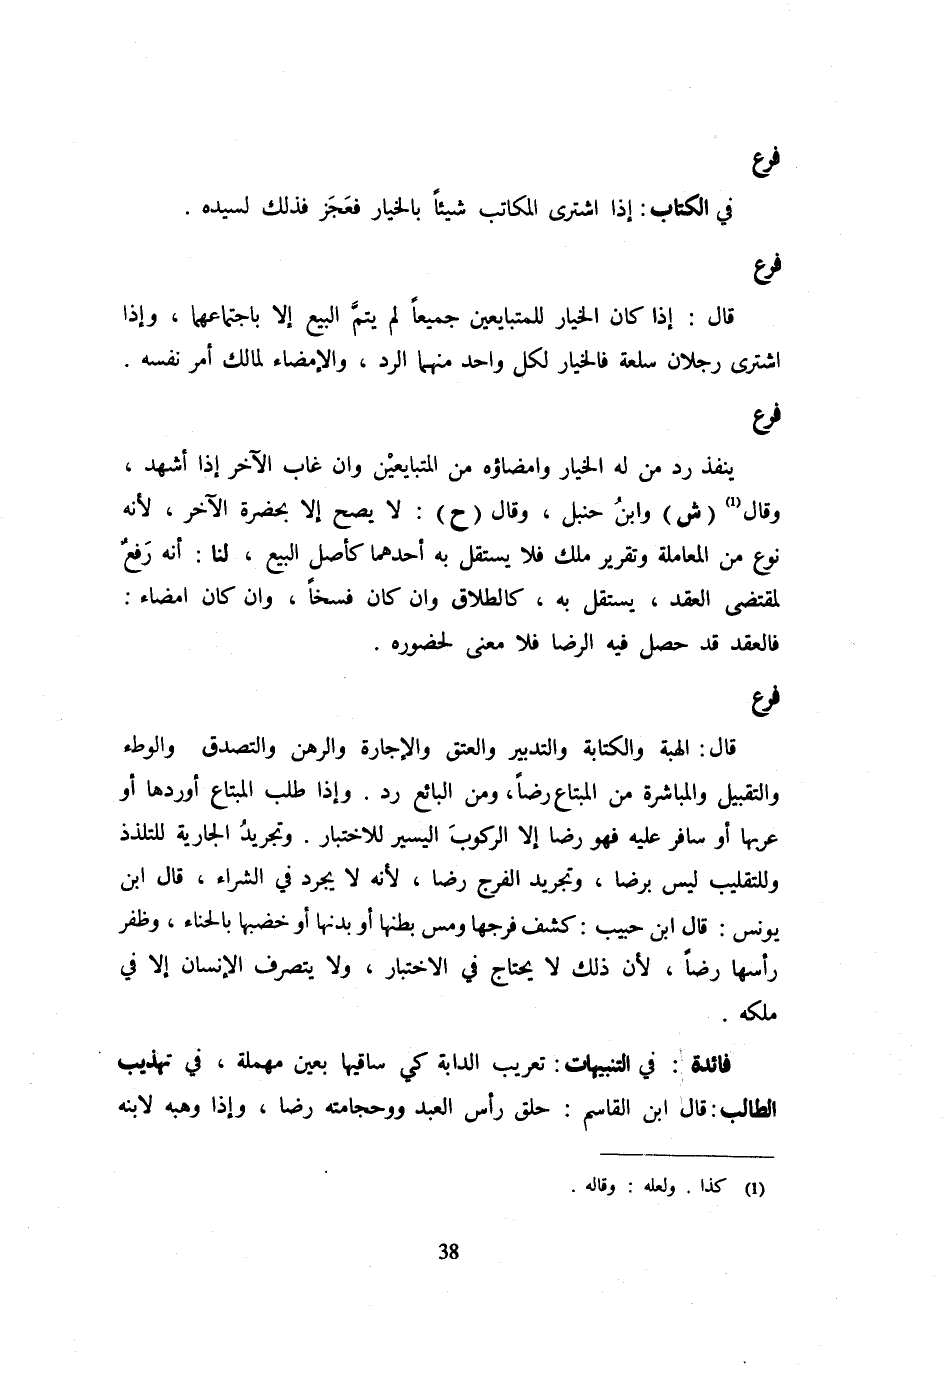 فرع
في الكتاب : إذا اشترى المكاتب شيئاً بالخيار فعَجَز فذلك لسيده .
فرع
قال : إذا كان الخيار للمتبايعين جميعاً لم يتمَّ البيع إلا باجتماعهما ، وإذا
اشترى رجلان سلعة فالخيار لكل واحد منهما الرد ، والإمضاء لمالك أمر نفسه .
فرع
ينفذ رد من له الخيار وامضاؤه من المتبايعيْن وان غاب الآخر إذا أشهد ،
وقال(1) ( ش ) وابنُ حنبل ، وقال ( ح ) : لا يصح إلا بحضرة الآخر ، لأنه
نوع من المعاملة وتقرير ملك فلا يستقل به أحدهما كأصل البيع ، لنا : أنه رَفعٌ
لمقتضى العقد ، يستقل به ، كالطلاق وان كان فسخاً ، وان كان امضاء :
فالعقد قد حصل فيه الرضا فلا معنى لحضوره .
فرع
قال : الهبة والكتابة والتدبير والعتق والإجارة والرهن والتصدق والوطء
والتقبيل والمباشرة من المبتاع رضاً ، ومن البائع رد . وإذا طلب المبتاع أوردها أو
عربها أو سافر عليه فهو رضا إلا الركوبَ اليسير للاختبار . وتجريدُ الجارية للتلذذ
وللتقليب ليس برضا ، وتجريد الفرج رضا ، لأنه لا يجرد في الشراء ، قال ابن
يونس : قال ابن حبيب : كشف فرجها ومس بطنها أو بدنها أو خضبها بالحناء ، وظفر
رأسها رضاً ، لأن ذلك لا يحتاج في الاختبار ، ولا يتصرف الإنسان إلا في
ملكه .
فائدة : في التنبيهات : تعريب الدابة كي ساقيها بعين مهملة ، في تهذيب
الطالب : قال ابن القاسم : حلق رأس العبد ووحجامته رضا ، وإذا وهبه لابنه
(1) كذا . ولعله : وقاله .
38